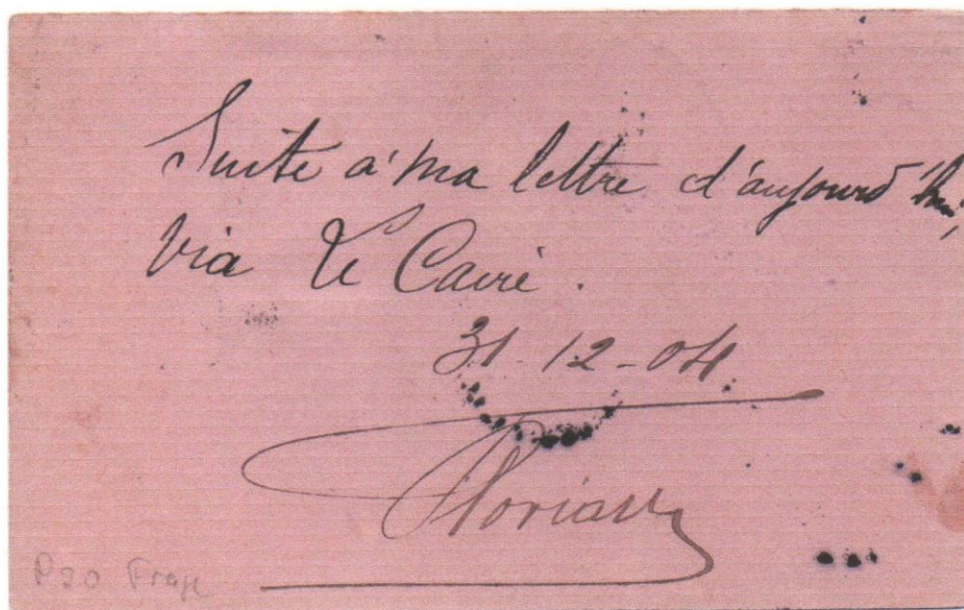 Suite à ma lettre d'aujourd'hui,
via Le Caire.
31-12-04.
Floriany
P20 Frage